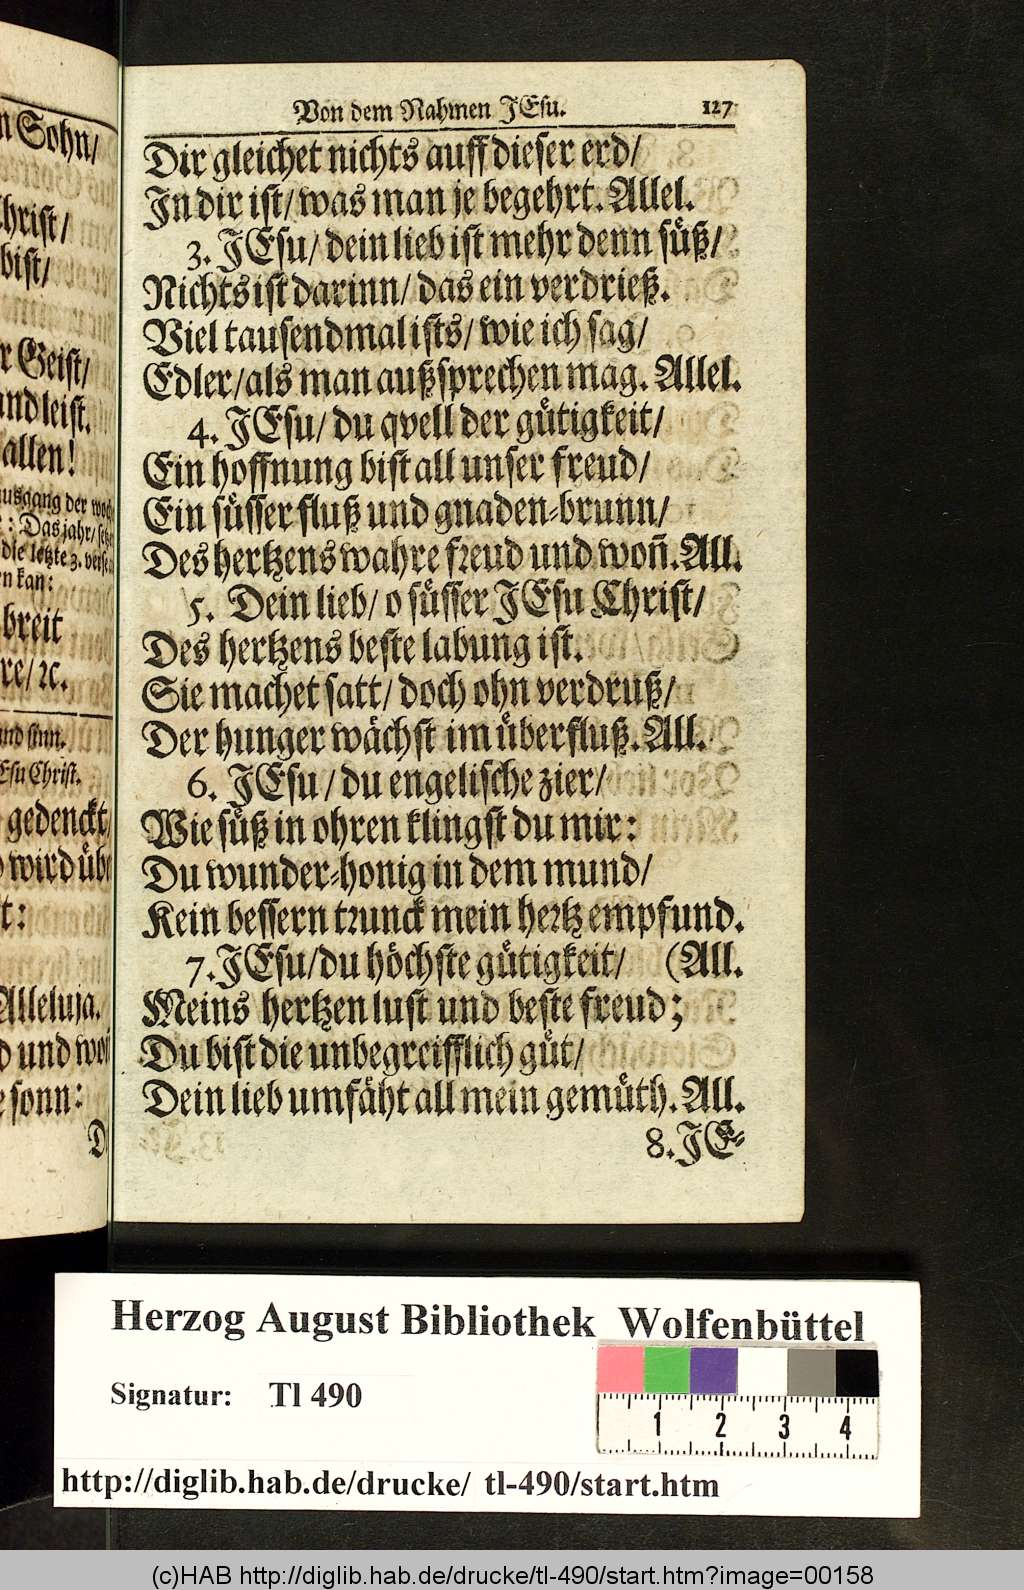 n Sohn/
hrist/
bist/
r Geist/
und leist.
allen!
ausgang der woch
: Das jahr/ setz
die letzte 3. verse
en kan:
breit
re/ ꝛc.
und sinn.
Esu Christ.
gedenckt/
wird übe
t:
Alleluja.
d und won
e sonn:
D
Von dem Nahmen JEsu. 127
Dir gleichet nichts auff dieser erd/
In dir ist/ was man je begehrt. Allel.
3. JEsu/ dein lieb ist mehr denn süß/
Nichts ist darinn/ das ein verdrieß.
Viel tausendmal ists/ wie ich sag/
Edler/ als man außsprechen mag. Allel.
4. JEsu/ du qvell der gütigkeit/
Ein hoffnung bist all unser freud/
Ein süsser fluß und gnaden-brunn/
Des hertzens wahre freud und woñ. All.
5. Dein lieb/ o süsser JEsu Christ/
Des hertzens beste labung ist.
Sie machet satt/ doch ohn verdruß/
Der hunger wächst im überfluß. All.
6. JEsu/ du engelische zier/
Wie süß in ohren klingst du mir:
Du wunder-honig in dem mund/
Kein bessern trunck mein hertz empfund.
7. JEsu/ du höchste gütigkeit/ (All.
Meins hertzen lust und beste freud;
Du bist die unbegreifflich güt/
Dein lieb umfäht all mein gemüth. All.
8. JE-
Herzog August Bibliothek Wolfenbüttel
Signatur: Tl 490
1 2 3 4
http://diglib.hab.de/drucke/ tl-490/start.htm
(c)HAB http://diglib.hab.de/drucke/tl-490/start.htm?image=00158